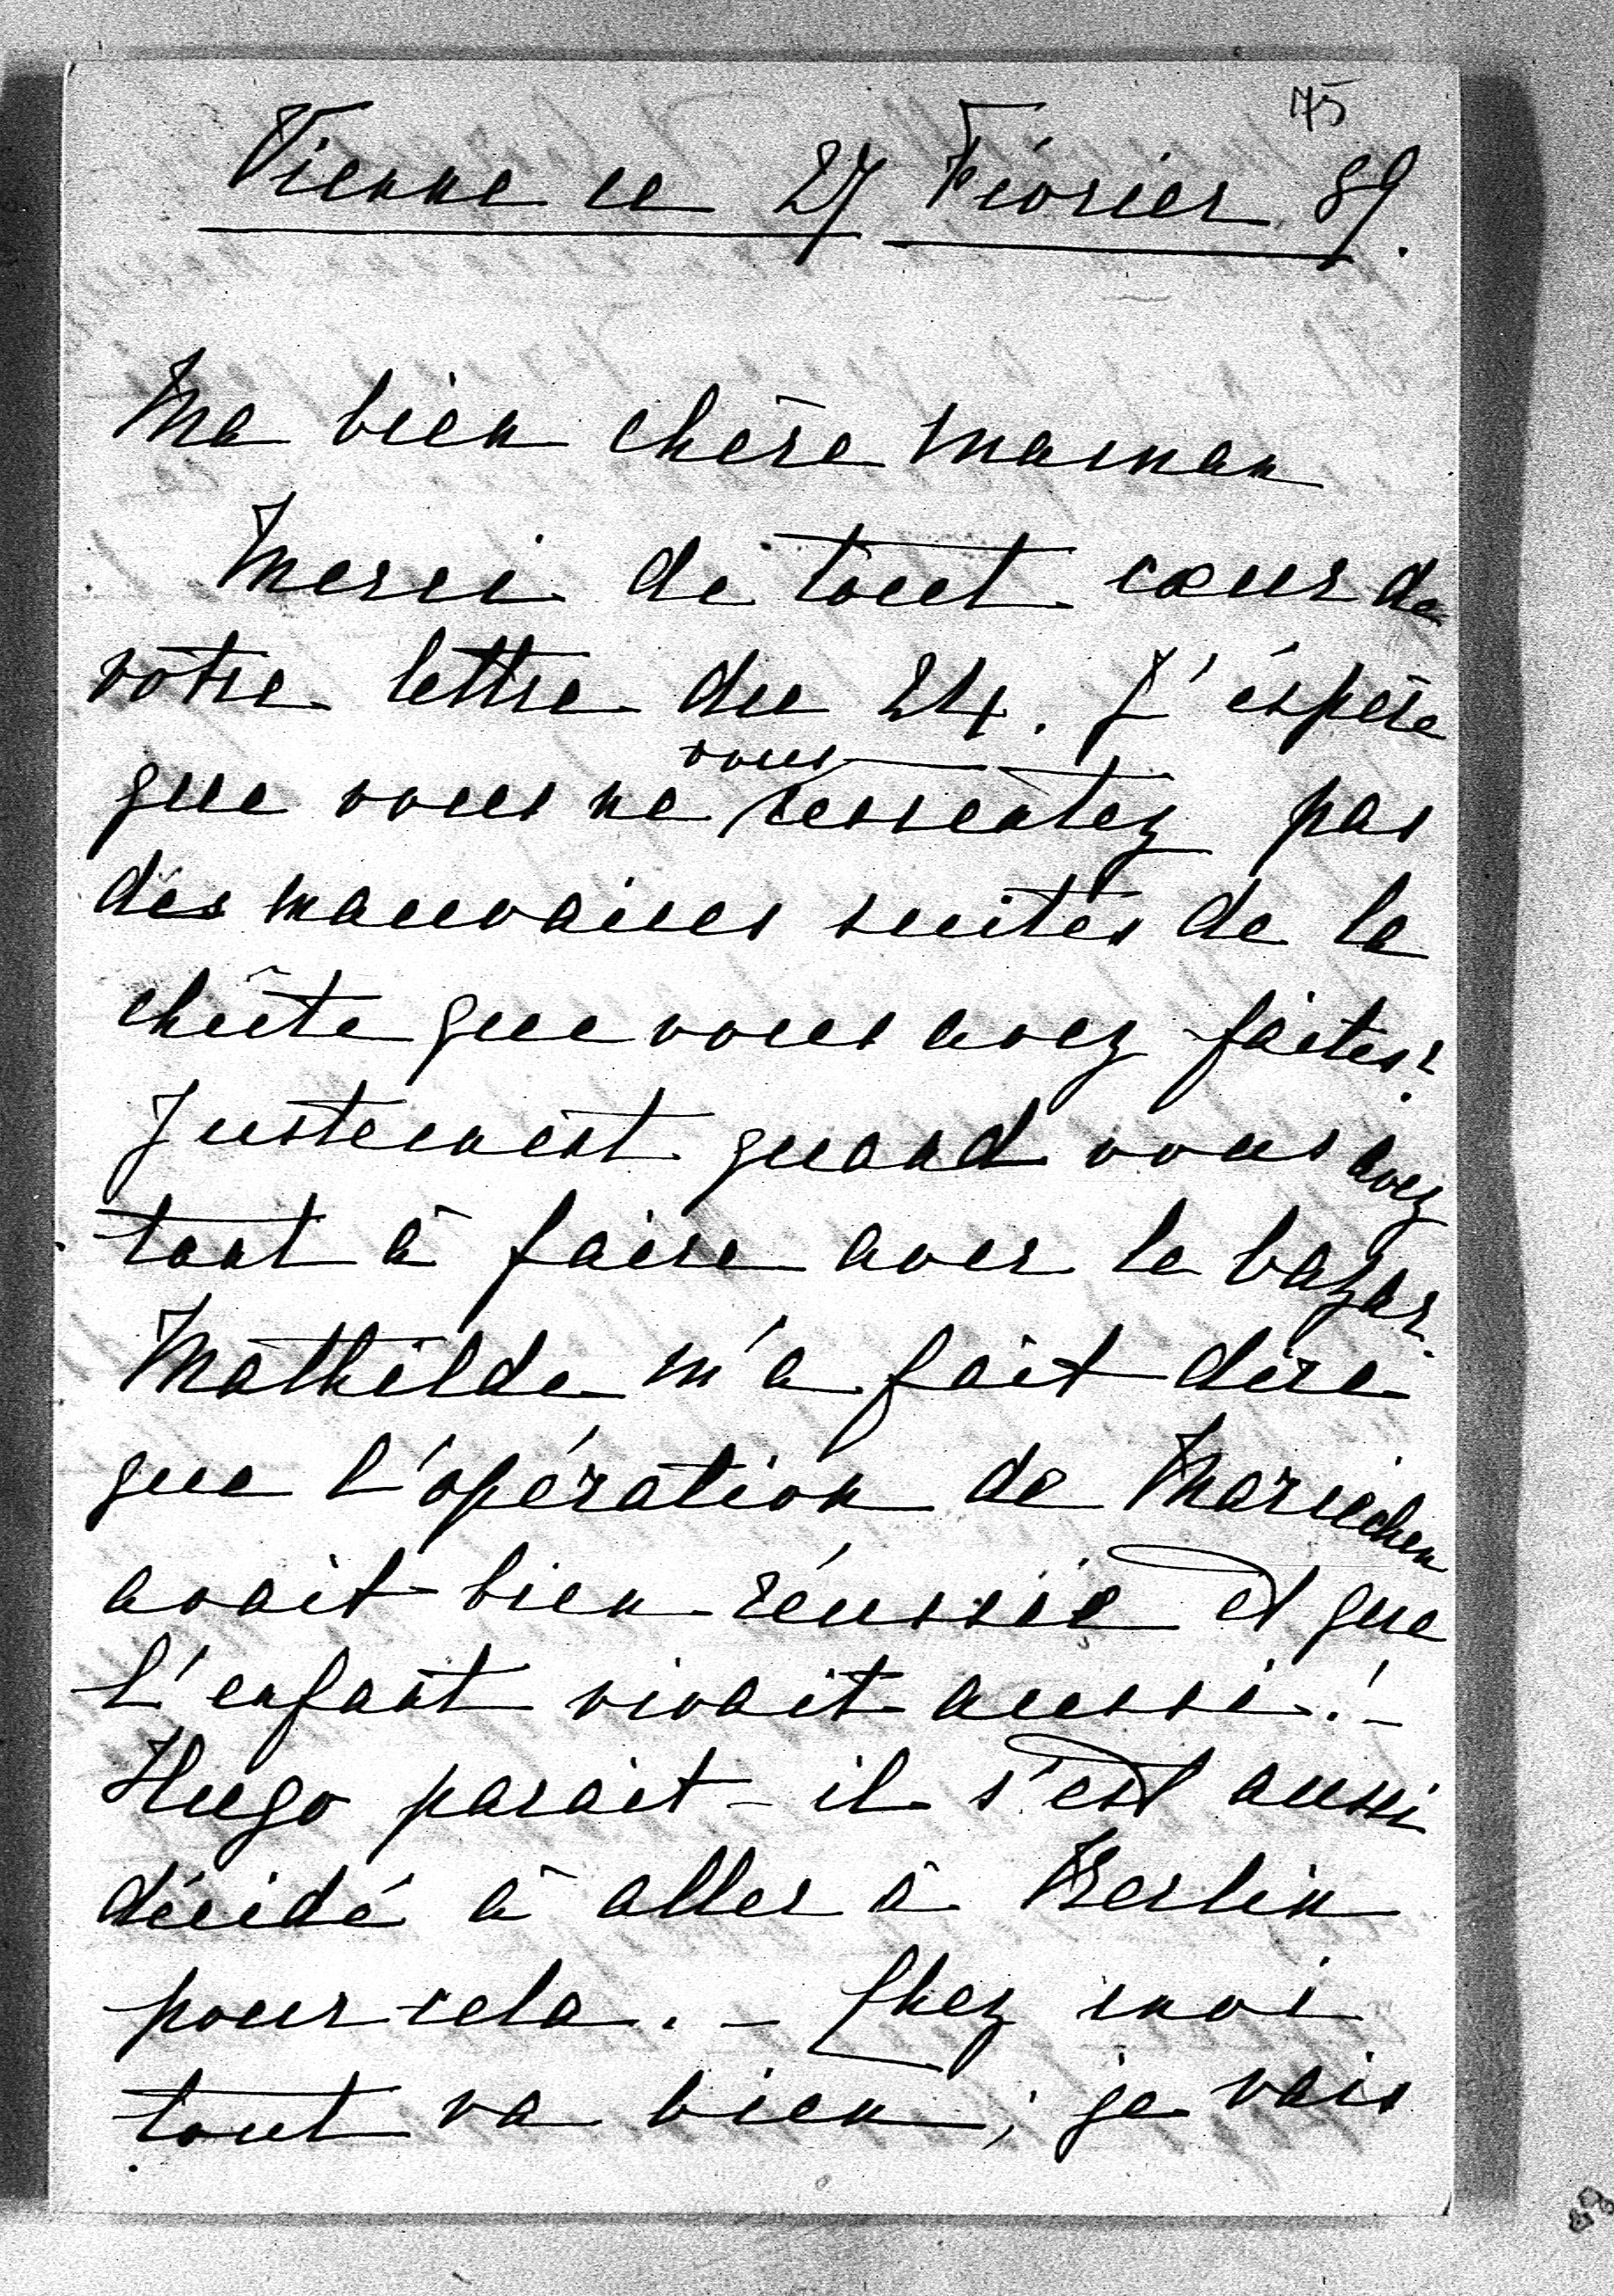 75
Vienne ce 27 Février 89.
Ma bien chère Maman
Merci de tout cœur de
votre lettre du 24. J'éspère
que vous ne vous ressentez pas
des mauvaises suites de la
chûte que vous avez faites?
Justement quand vous avez
tant à faire avec le bazar.
Mathilde m'a fait dire
que l'opération de Mariechen
avait bien réussie et que
l'enfant vivait aussi! –
Hugo parait-il s'est aussi
décidé à aller à Berlin
pour cela. – Chez moi
tout va bien; je vais